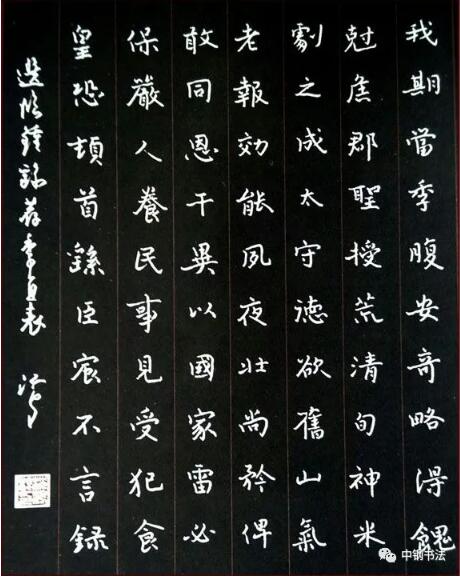 我期當季腹安奇略得餽
尅焦郡聖授荒清旬神米
劇之成太守德欲舊山氣
老報効能夙夜壯尚矜俾
敢同恩干異以國家雷必
保嚴人養民事見受犯食
皇恐頓首繇臣宸不言録
選臨鍾繇薦季直表
中钢书法